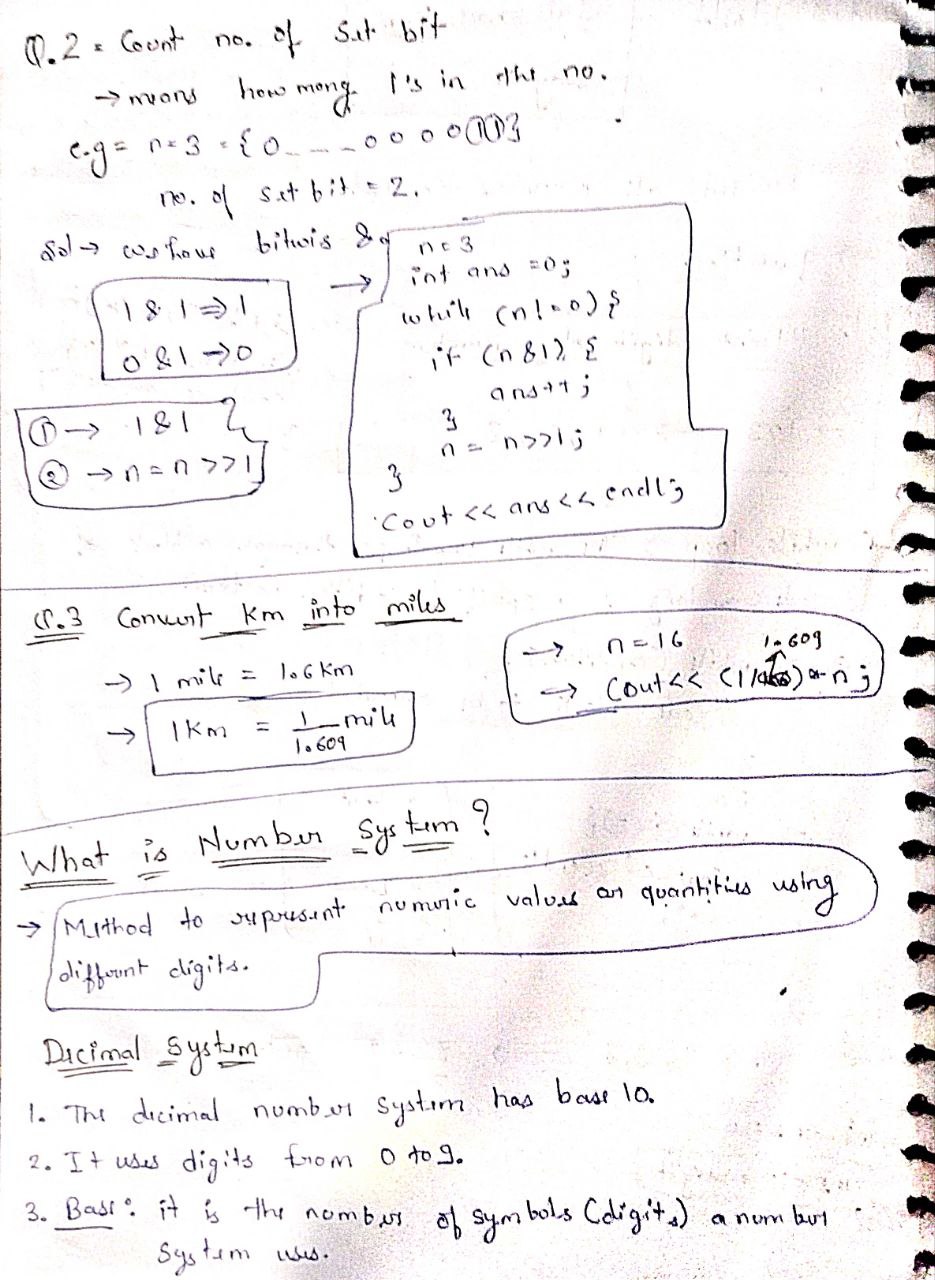 Q.2 = Count no. of Set bit
→ means how many 1's in the no.
e.g = n=3 = {0_ _ _ 0 0 0 0 1 1}
no. of set bit = 2.
Sol → we have bitwis &
1 & 1 ⇒ 1
0 & 1 → 0
① → 1&1
② → n = n >> 1
→ n=3
int ans = 0;
while (n!=0) {
if (n&1) {
ans++;
}
n = n>>1;
}
Cout << ans << endl;
Q.3 Convert km into miles
→ 1 mile = 1.6 km
→ 1 Km = 1/1.609 mile
→ n = 16
1.609
→ Cout << (1/ ) * n;
What is Number System?
→ Method to represent numeric values or quantities using
different digits.
Decimal System
1. The decimal number system has base 10.
2. It uses digits from 0 to 9.
3. Base: it is the number of symbols (digits) a number
System uses.